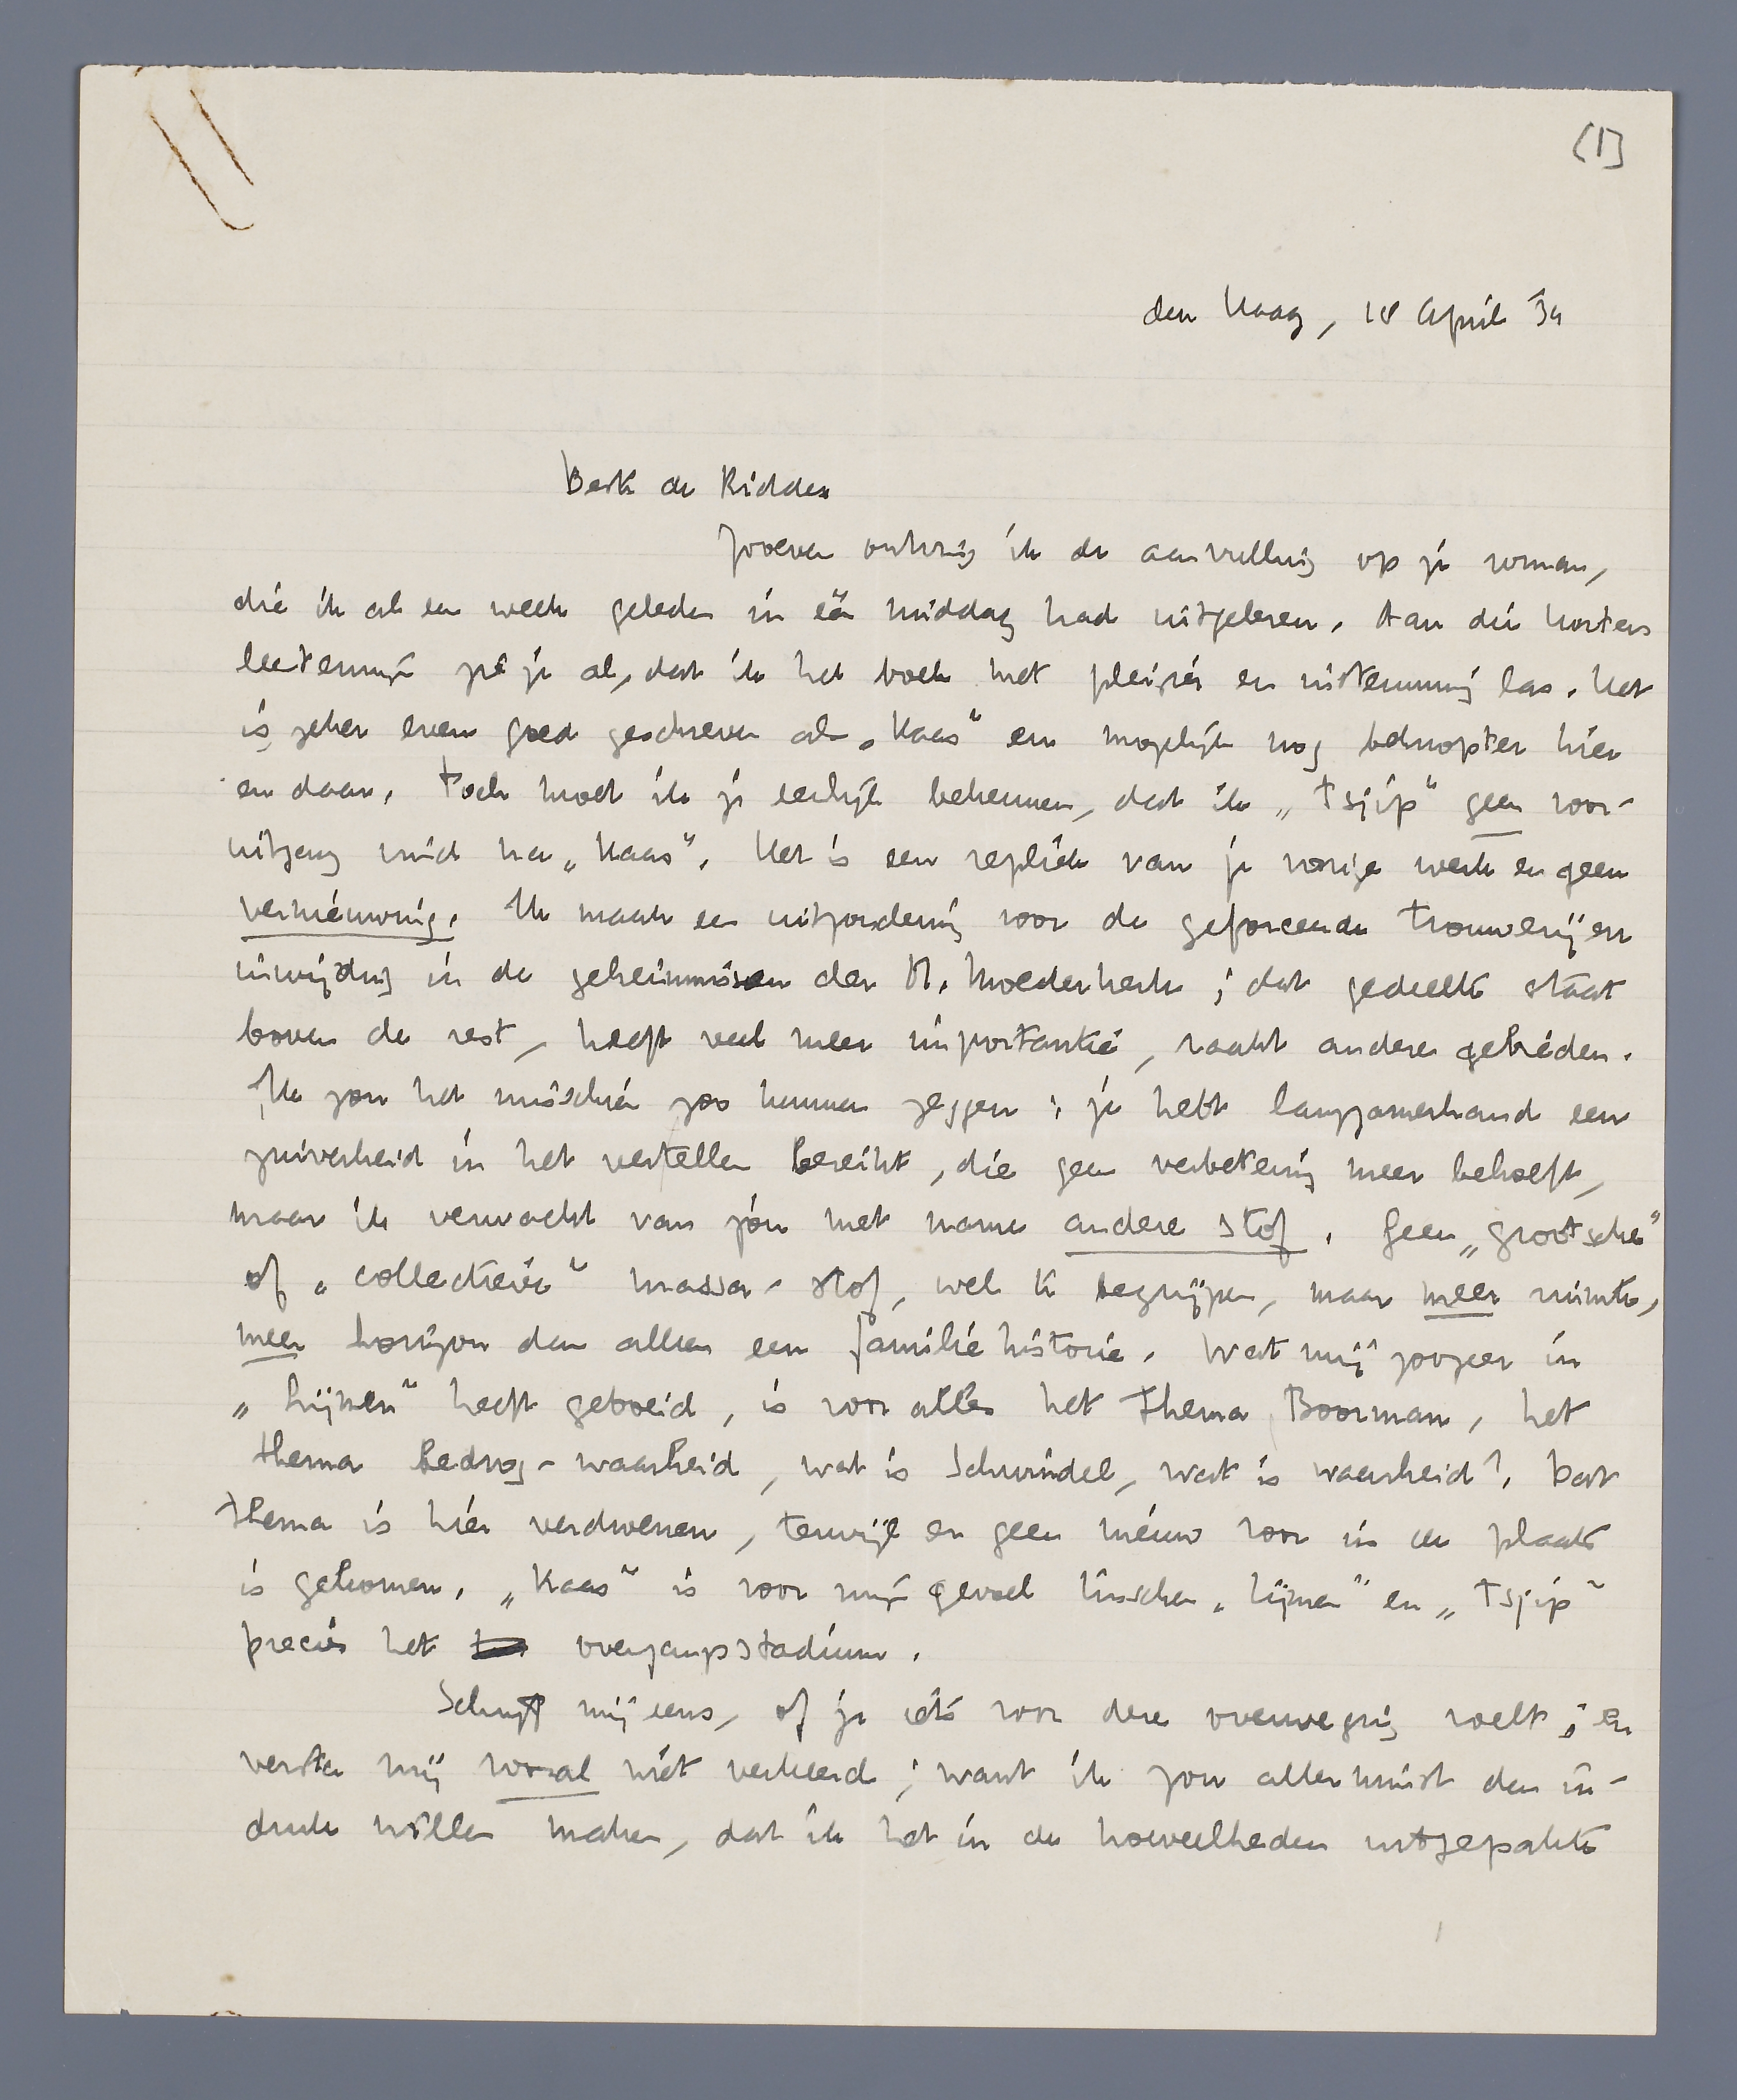 [1]
den Haag, 18 April '34
Beste de Ridder
Zooeven ontving ik de aanvulling op je roman,
die ik al een week geleden in één middag had uitgelezen. Aan die
lectuur zie je al, dat ik het boek met pleizier en instemming las. Het
is zeker even goed geschreven als „Kaas" en mogelijk nog beknopter hier
en daar. Toch moet ik je eerlijk bekennen, dat ik „Tsjip" geen voor-
uitgang vind na „Kaas". Het is een repliek van je vorige werk en geen
vernieuwing. Ik maak een uitzondering voor de geforceerde trouwerij en
inwijding in de geheimnissen der M. Moederkerk; dat gedeelte staat
boven de rest, heeft veel meer importantie, raakt andere gebieden.
Ik zou het misschien zoo kunnen zeggen: je hebt langzamerhand een
zuiverheid in het vertellen bereikt, die geen verbetering meer behoeft,
maar ik verwacht van jóu met name andere stof. Geen „grootsche"
of „collectieve" massa-stof, wel te begrijpen, maar meer ruimte,
meer horizon dan alleen een familiehistorie. Wat mij zoozeer in
„Lijmen" heeft geboeid, is voor alles het thema Boorman, het
thema bedrog-waarheid, wat is Schwindel, wat is waarheid?. Dat
thema is hier verdwenen, terwijl er geen nieuw voor in de plaats
is gekomen. „Kaas" is voor mijn gevoel tusschen „Lijmen" en „Tsjip"
precies het overgangsstadium.
Schrijf mij eens, of je iets voor deze overweging voelt; en
versta mij vooral niet verkeerd; want ik zou allerminst den in-
druk willen maken, dat ik het in de hoeveelheden uitgepakte